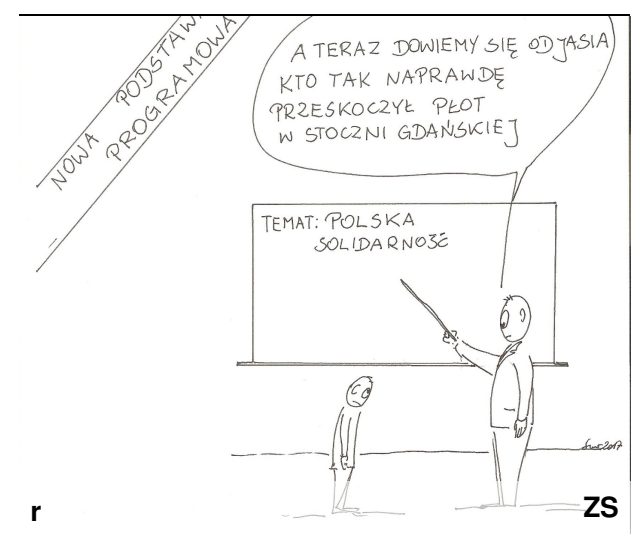 NOWA PODSTAWA
PROGRAMOWA
A TERAZ DOWIEMY SIĘ OD JASIA
KTO TAK NAPRAWDĘ
PRZESKOCZYŁ PŁOT
W STOCZNI GDAŃSKIEJ
TEMAT: POLSKA
SOLIDARNOŚĆ
r
ZS